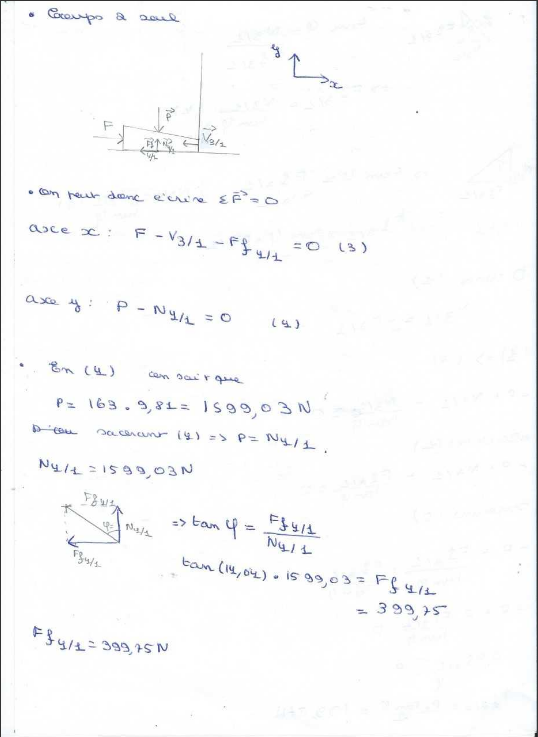 • Corps 2 seul
y
x
P
F
Ff 4/1 N4/1 V3/1
• On peut donc écrire ΣF = 0
axe x : F - V3/1 - Ff 4/1 = 0 (3)
axe y : P - N4/1 = 0 (4)
• En (4) on sait que
P = 163 . 9,81 = 1599,03 N
D'où sachant (4) => P = N4/1 .
N4/1 = 1599,03 N
Ff 4/1
φ N4/1
Ff 4/1
=> tan φ = Ff 4/1 / N4/1
tan (14,04) . 1599,03 = Ff 4/1
= 399,75
Ff 4/1 = 399,75 N